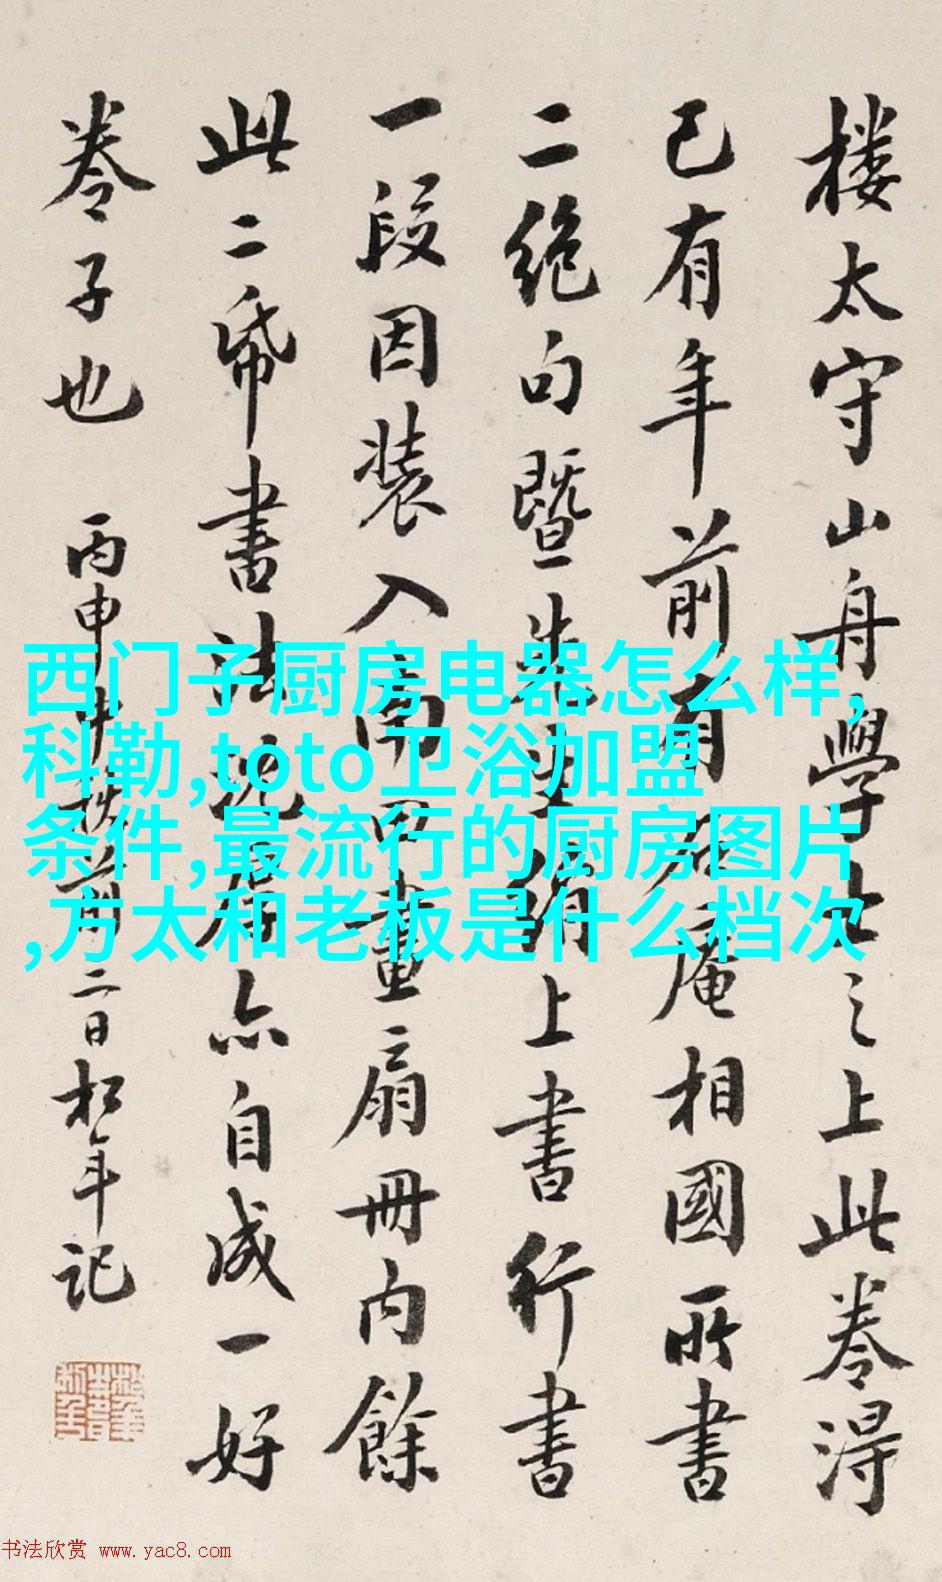 楼太守山舟學士之上此卷淂
已有年前有庵相國所書
二絶句暨先生绢上書行書
一段因装入南田畫扇冊内餘
此二帋書法亦自成一好
卷子也 丙申中秋前二日松年記
西门子厨房电器怎么样,
科勒,toto卫浴加盟
条件,最流行的厨房图片
,方太和老板是什么档次
书法欣赏 www.yac8.com